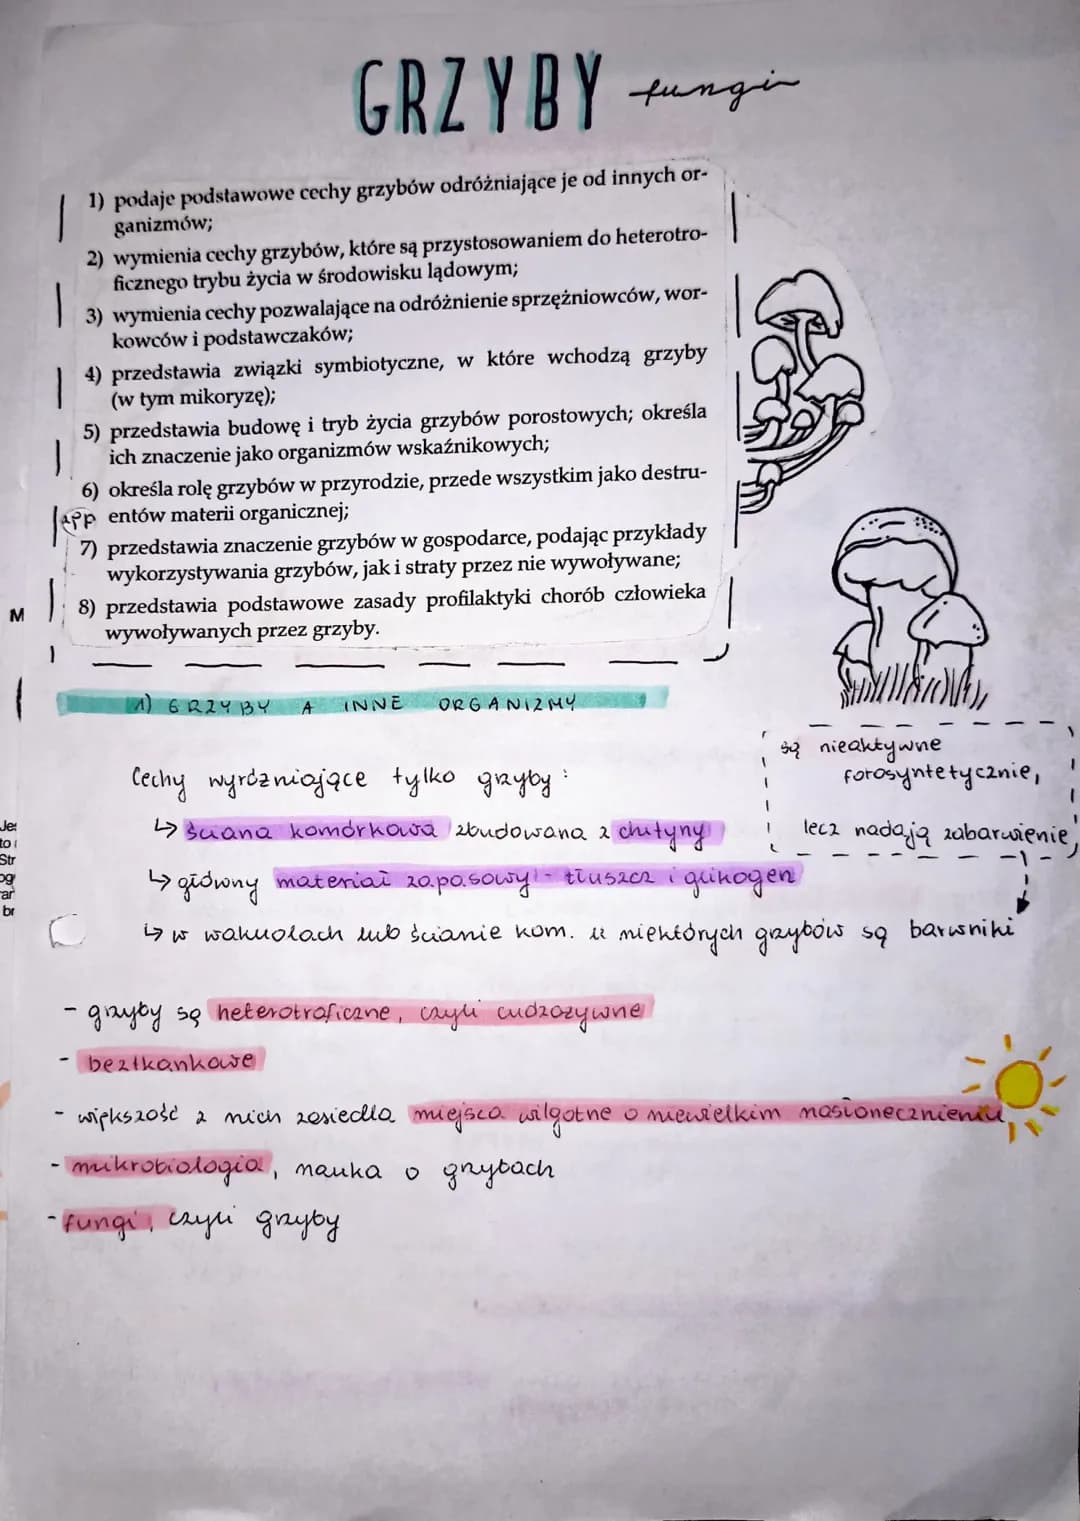 GRZYBY fungi
1) podaje podstawowe cechy grzybów odróżniające je od innych or-
ganizmów;
2) wymienia cechy grzybów, które są przystosowaniem do heterotro-
ficznego trybu życia w środowisku lądowym;
3) wymienia cechy pozwalające na odróżnienie sprzężniowców, wor-
kowców i podstawczaków;
4) przedstawia związki symbiotyczne, w które wchodzą grzyby
(w tym mikoryzę);
5) przedstawia budowę i tryb życia grzybów porostowych; określa
ich znaczenie jako organizmów wskaźnikowych;
6) określa rolę grzybów w przyrodzie, przede wszystkim jako destru-
entów materii organicznej;
7) przedstawia znaczenie grzybów w gospodarce, podając przykłady
wykorzystywania grzybów, jak i straty przez nie wywoływane;
M
8) przedstawia podstawowe zasady profilaktyki chorób człowieka
wywoływanych przez grzyby.
1) GRZYBY A INNE ORGANIZMY
są nieaktywne
fotosyntetycznie,
lecz nadają zabarwienie
Cechy wyróżniające tylko grzyby:
↳ ściana komórkowa zbudowana z chityny
↳ główny materiał zapasowy - tłuszcz i glikogen
↳ w wakuolach lub ścianie kom. u niektórych grzybów są barwniki
- grzyby są heterotroficzne, czyli cudzożywne
- beztkankowe
- większość z nich zasiedla miejsca wilgotne o niewielkim nasłonecznieniu
- mikrobiologia, nauka o grzybach
- fungi, czyli grzyby